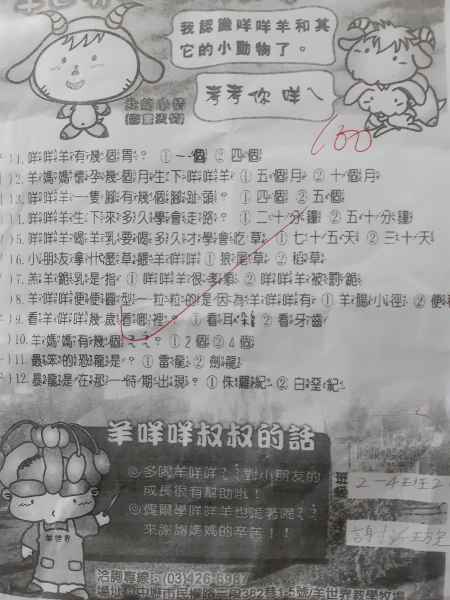 我認識咩咩羊和其
它的小動物了。
考考你 咩
我的心情
100
1. 咩咩羊有幾個胃? ①一個 ②四個
2. 羊媽媽懷孕幾個月生下咩咩羊 ①五個月 ②十個月
3. 咩咩羊一隻腳有幾個腳趾頭? ①四個 ②五個
4. 咩咩羊生下來多久學會走路? ①二十分鐘 ②五十分鐘
5. 咩咩羊喝羊乳要喝多久才學會吃草 ①七十五天 ②三十天
6. 小朋友拿什麼草餵羊咩咩 ①狼尾草 ②稻草
7. 羔羊跪乳是指 ①咩咩羊很孝順 ②咩咩羊被罰跪
8. 羊咩咩便便圓型一粒粒的是因為羊咩咩有 ①羊腸小徑 ②便
9. 看羊咩咩幾歲看哪裡? ①看耳朵 ②看牙齒
10. 羊媽媽有幾個ㄋㄟㄋㄟ? ①2個 ②4個
11. 最笨的恐龍是? ①雷龍 ②劍龍
12. 暴龍是在那一時期出現? ①侏羅紀 ②白堊紀
羊咩咩叔叔的話
◎多喝羊咩咩ㄋㄟㄋㄟ對小朋友的
成長很有幫助哦!
◎偶爾學咩咩羊也跪著喝ㄋㄟㄋㄟ
來謝謝媽媽的辛苦!!
班級
羊世界
洽詢專線:(03)426-6987
場址:中壢市民權路三段382巷1-5號/羊世界教學牧場